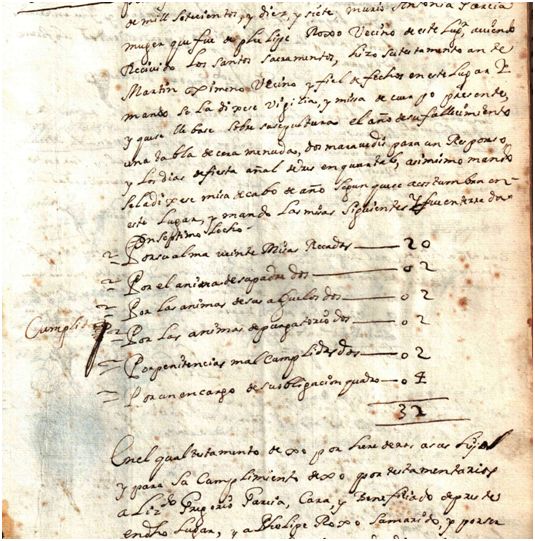 de mill setecientos, y diez, y siete, murio Antonia Garcia
muger que fue de phelipe Roxo Vecino de este Lugr, aviendo
Recivido Los santos sacramentos, hizo su testamento ante
Martin ximeno Vecino y fiel de fechos en este Lugar Y
mando se la dixese Vigilia, y misa de cuerpo presente,
y que se llebase sobre su sepultura el año de su fallecimiento
una tabla de cera menuda, dos maravedis para un Responso
y Los dias de fiesta añal de en quartas, asimismo mando
se la dixese misa de cabo de año segun que se acostumbra en
este Lugar, y mando Las misas siguientes Y fue enterrada
en septimo Lecho
Por su alma veinte Misas Rezadas — 20
Por el anima de su padre dos — 02
Por las animas de sus abuelos dos — 02
Por las animas de purgatorio dos — 02
Cumplido
Por penitencias mal Cumplidas dos — 02
Por un encargo de su obligacion quatro — 04
32
En el qual testamento dexo por herederos a sus hijos
y para su Cumplimiento dexo por testamentarios
a Lizdo Gregorio Garcia, Cura, y Beneficiado de preste
en dho Lugar, y a Phelipe Roxo su marido, y por ser